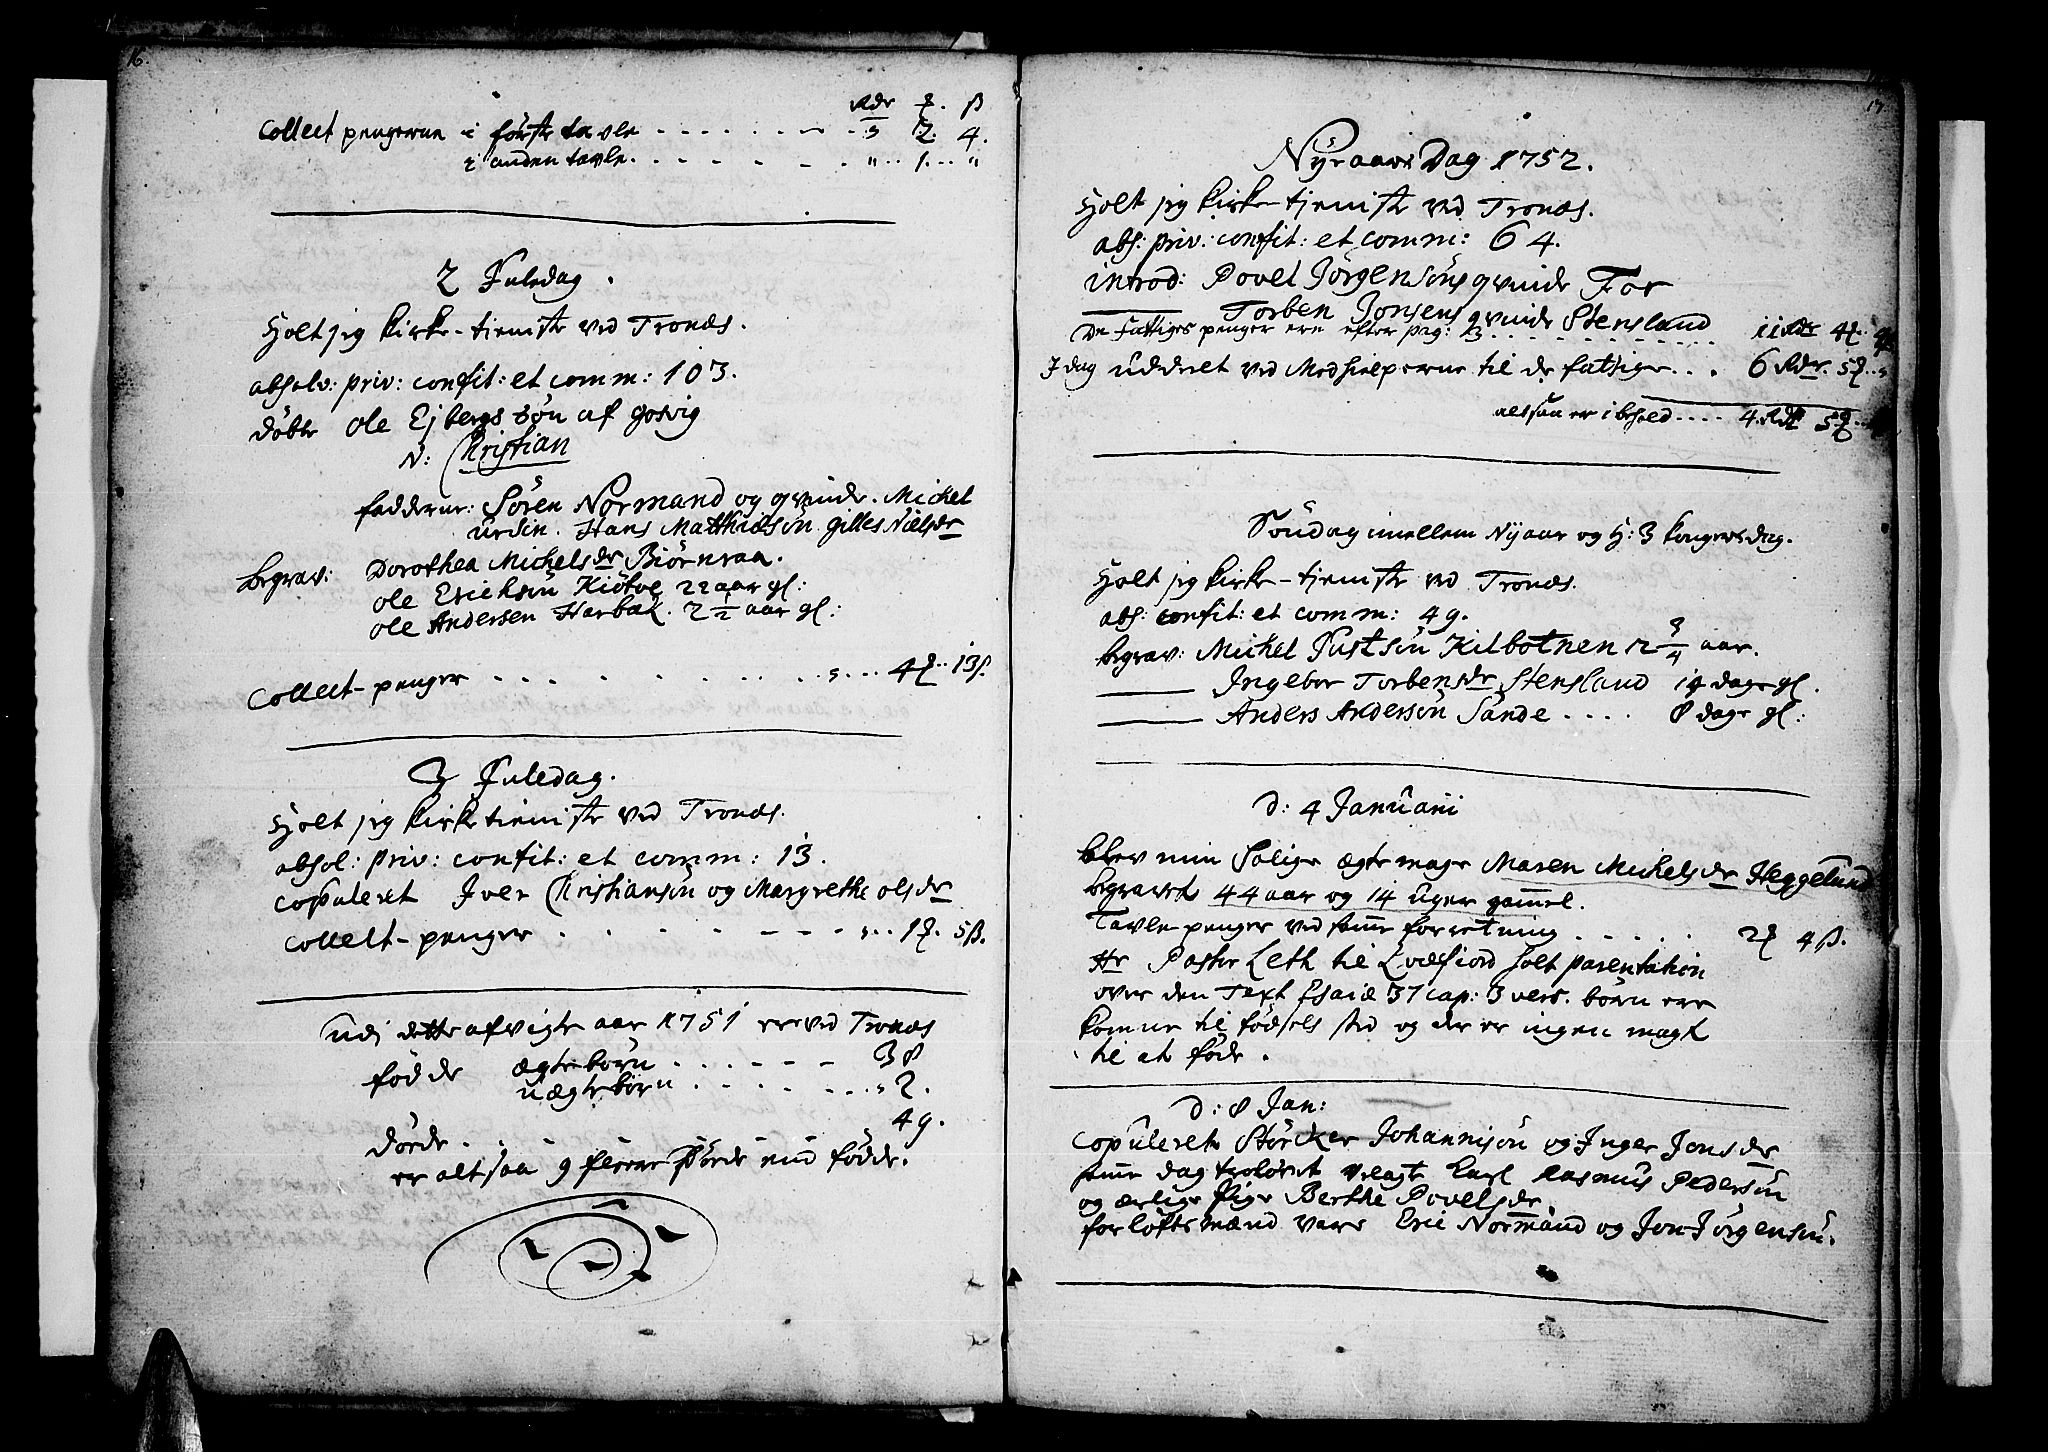 16.
Rdr ꝣ. ß
Collect pengerne i förste tavle . . . . . . 3 2. 4.
i anden tavle. . . . . . . " .. 1. .. "
2 Juledag.
Holt jeg kirke-tieniste ved Tronæs.
absolv: priv: confit: et comm: 103.
döbte Ole Ejbergs sön af gosvig
N: Christian
fadderne: Sören Normand og qvinde. Michel
Ursin. Hans Matthiæsön gilles Nielsdr
begrav: Dorothea Michelsdr Biörnraa.
Ole Erichsön Kiötve 22 aar gl:
Ole Andersen Harbak. 2 1/2 aar gl:
Collect-penger . . . . . . . . . . . 4ꝣ.. 13ß.
3 Juledag.
Holt jeg kirke tieniste ved Tronæs.
absol: priv: confit: et comm: 13.
copuleret Iver Christiansön og Margrethe olsdr
Collect-penger . . . . . . . . . . 1ꝣ. 5ß.
Udi dette afvigte aar 1751 ere ved Tronæs
födde ægte börn . . . . . . 38
uægte börn . . . . . . . " 2.
dörde . . . . 49.
er altsaa 9 fleere dörde end födde.
17.
Nyraars Dag 1752.
Holt jeg kirke-tieniste ved Tronæs.
abs: priv: confit: et comm: 64.
introd: Povel Jörgensöns qvinde For
Torben Jonsens qvinde Stensland
De Fattiges penger ere efter pag: 13 . . . . . . . . . . 11 Rdr 4ꝣ.
I dag uddeelt ved Medhielperne til de fattige . . . 6 Rdr. 5ꝣ..
altsaa er i behold . . . . 4. Rdr 5ꝣ..
Söndag imellem Nyaar og H: 3 kongersdag.
Holt jeg kirke-tieniste ved Tronæs.
abs: confit: et comm: 49.
begrav: Michel Justsön Kilbotnen 2 3/4 aar.
Ingebor Torbensdr Stensland 14 dage gl.
Anders Andersön Sande . . . . 8 dage gl:
d: 4 Januarii
blev min Salige ægte mage Maren Michelsdr Heggelund
begravet 44 aar og 14 uger gammel.
Tavle-penger ved samme forretning . . . . . 2ꝣ 4ß.
Hr Pastor Leth til Qvæfiord holt parentation
over den Text Esaiæ 37 cap: 3 vers. börn ere
komne til födsels sted og der er ingen magt
til at föde.
d: 8 Jan:
copuleret Störcker Johannisön og Inger Jonsdr
samme dag trolovet velagt karl Rasmus Pedersön
og ærlige Pige Berthe Povelsdr
forlöfts mænd vare Eric Normand og Jon Jörgensön.